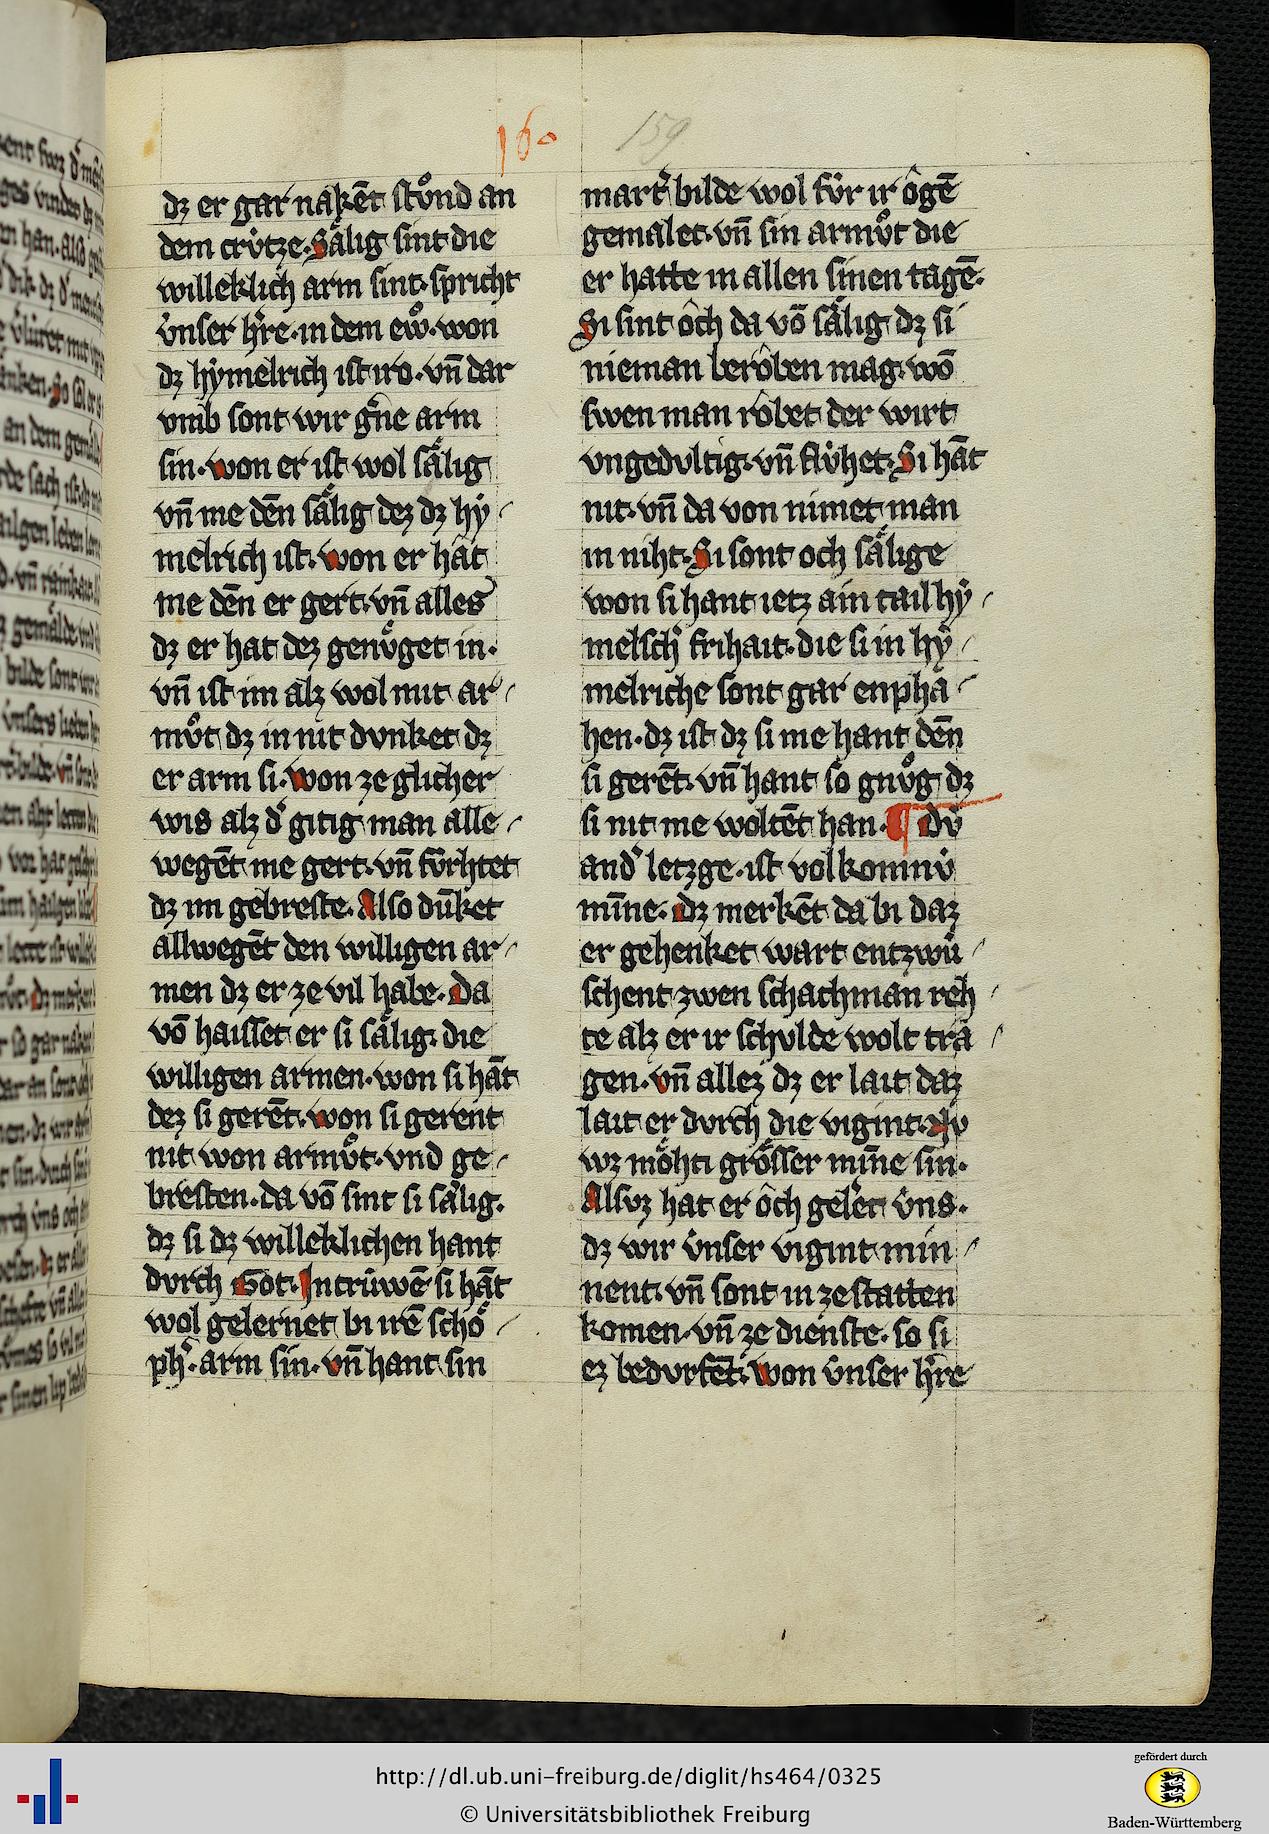 160
159
dz er gar nakēt stůnd an
dem crútze. Sälig sint die
willeklich arm sint. spricht
v́nser h̓re. in dem eẘ. won
dz hẏmelrich ist iro. vn̄ dar
vmb sont wir g̓ne arm
sin. won er ist wol sälig
vn̄ me dēn sälig dez dz hẏ-
melrich ist. won er hât
me dēn er gert. vn̄ alles
dz er hat dez genůget in.
vn̄ ist im alz wol mit ar-
mv̊t dz in nit dvnket dz
er arm si. won ze glicher
wis alz d̓ gitig man alle-
wegēt me gert. vn̄ fúrhtet
dz im gebreste. Also dúnket
allwegēt den willigen ar-
men dz er ze vil habe. Da
vō haisset er si sälig. die
willigen armen. won si hāt
dez si gerēt. won si gerent
nit won armv̊t. vnd ge-
bresten. da vō sint si sälig.
dz si dz willeklichen hant
dvrch Got. Intrúwē si hāt
wol gelernet bi irē schö-
ph̓. arm sin. vn̄ hant sin
mart̓ bilde wol fúr ir ôgē
gemalet. vn̄ sin armv̊t die
er hatte in allen sinen tagē.
Si sint ôch da vō sälig dz si
nieman berôben mag. wō
swen man rôbet der wirt
vngedvltig. vn̄ flúhet. Si hāt
nit. vn̄ da von nimet man
in niht. Si sont och sälige
won si hant ietz ain tail hẏ-
melsch̓ frihait. die si in hẏ-
melriche sont gar enpha-
hen. dz ist dz si me hant dēn
si gerēt. vn̄ hant so gnv̊g dz
si nit me woltēt han. ¶ Dv́
and̓ letzge. ist volkomnv́
mīne. dz merkēt da bi daz
er gehenket wart entzwú-
schent zwen schachman reh-
te alz er ir schvlde wolt tra-
gen. vn̄ allez dz er lait daz
lait er dvrch die vigint. Nv
wz möhti grösser mīne sin.
Alsvz hat er ôch gelert v́ns.
dz wir v́nser vigint min-
nent. vn̄ sont in ze statten
komen. vn̄ ze dienste. so si
ez bedvrfēt. won v́nser h̓re
http://dl.ub.uni-freiburg.de/diglit/hs464/0325
© Universitätsbibliothek Freiburg
gefördert durch
Baden-Württemberg